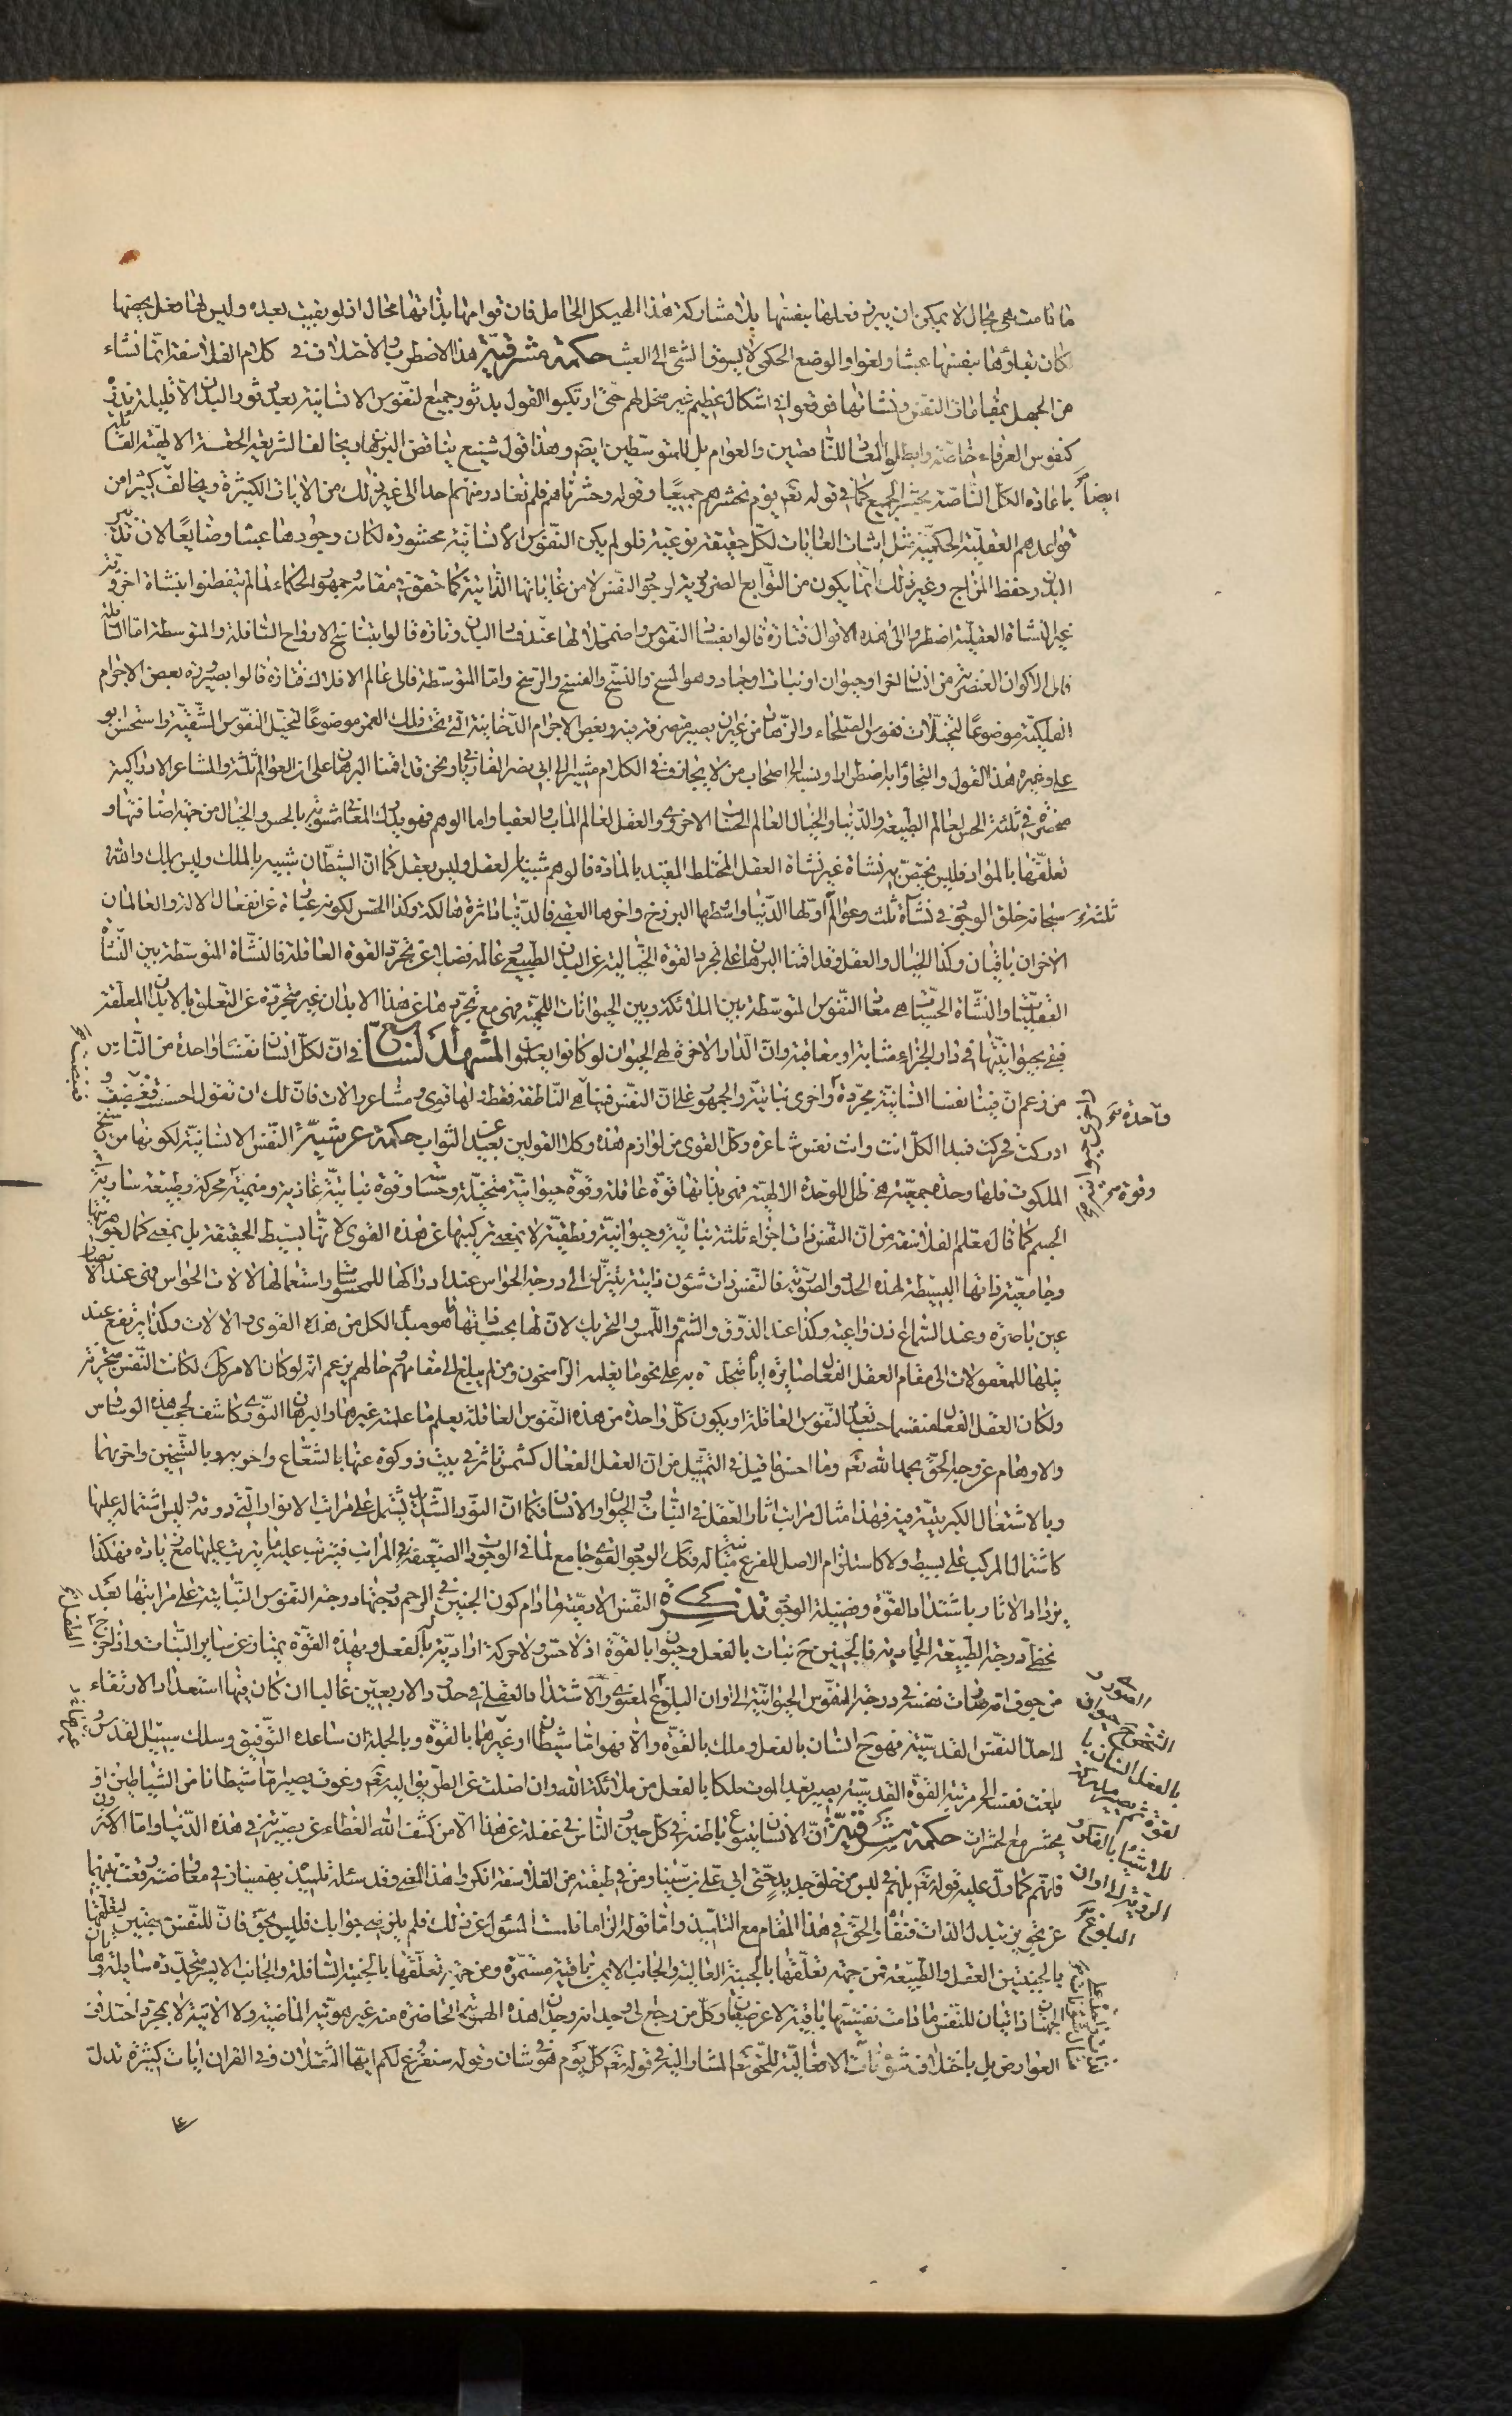 ما دامت هى بحال لا يمكن ان يبرز فعلها بنفسها بلا مشاركة هذا الهيكل الحامل فان قوامها بذاتها محال اذ لو بقيت بعده وليس لها فعل يخصها
لكان بقاؤها بنفسها عبثا ولغوا والوضع الحكمى لا يسوق الشئ الى العبث حكمة مشرقية هذا الاضطراب والاختلاف فى كلام الفلاسفة انما نشاء
من الجهل بمقامات النفس ونشاتها فوقعوا فى اشكال عظيم غير منحل لهم حتى ارتكبوا القول بدثور جميع النفوس الانسانية بعد دثور البدن الا قليلة نادرة
كنفوس العرفاء خاصة وابطلوا المعاد للناقصين والعوام بل للمتوسطين ايضا وهذا قول شنيع يناقض البرهان ويخالف الشريعة الحقة الالهية القائلة
ايضاً باعادة الكل الناصة بحشر الجميع كما فى قوله تعم يوم نحشرهم جميعًا وقوله وحشرناهم فلم نغادر منهم احدا الى غير ذلك من الايات الكثيرة ويخالف كثيرا من
قواعدهم العقلية الحكمية مثل اثبات الغايات لكل حقيقة نوعية فلو لم يكن النفوس الانسانية محشورة لكان وجودها عبثا وضايعًا لان تدبير
البدن وحفظ المزاج وغير ذلك انما يكون من التوابع الضرورية لوجود النفس لا من غاياتها الذاتية كما حقق فى مقامه وجمهور الحكماء لما لم يتفطنوا بنشاة اخروية
غير النشاة العقلية اضطروا الى هذه الاقوال فتارة قالوا بفساد النفوس واضمحلالها عند فساد البدن وتارة قالوا بتناسخ الارواح السافلة والمتوسطة اما السافلة
فالى الاكوان العنصرية من انسان اخر او حيوان او نبات او جماد وهو المسخ والنسخ والفسخ والرسخ واما المتوسطة فالى عالم الافلاك فتارة قالوا بصيرورة بعض الاجرام
الفلكية موضوعًا لتخيلات نفوس الصلحاء والزهاد من غير ان يصير متصرفة فيه وبعض الاجرام الدخانية التى تحت فلك القمر موضوعًا لتخيل النفوس الشقية واستحسن ابو
على وغيره هذا القول والتجاؤا به اضطرارا ونسبه الى اصحاب من لا يجازف فى الكلام مشيرا الى ابى نصر الفارابى ونحن قد اقمنا البرهان على ان العوالم ثلثة والمشاعر الادراكية
منحصرة فى ثلثة الحس لعالم الطبيعة والدنيا والخيال لعالم الحساب الاخروى والعقل لعالم الماب والعقبا واما الوهم فهو يدرك المعانى مشوبة بالحس والخيال من جهة اضافتها و
تعلقها بالمواد فليس يختص به نشاة غير نشاة العقل المختلط المقيد بالمادة فالوهم شبيه بالعقل وليس بعقل كما ان الشيطان شبيه بالملك وليس بملك والله
سبحانه خلق الوجود فى نشات ثلث وعوالم ثلثة اولها الدنيا واوسطها البرزخ واخرها العقبى فالدنيا داثرة هالكة وكذا الحس لكونه عبارة عن انفعال الالة والعالمان
الاخران باقيان وكذا الخيال والعقل وقد اقمنا البرهان على تجرد القوة الخيالية عن البدن الطبيعى وعالمه فضلا عن تجرد القوة العاقلة فالنشاة المتوسطة بين النشاة
العقلية والنشاة الحسية هى معاد النفوس المتوسطة بين الملائكة وبين الحيوانات اللحمية فهى مع تجردها عن هذا الابدان غير متجردة عن التعلق بالابدان المعلقة
فيبقى بحيوانيتها فى دار الجزاء مثابة او معاقبة وان الدار الاخرة لهى الحيوان لو كانوا يعلمون المشهد التاسع فى ان لكل انسان نفسًا واحدة من الناس
من زعم ان فينا نفسا انسانية مجردة واخرى نباتية والجمهور على ان النفس فينا هى الناطقة فقط لها قوى ومشاعر والات فان لك ان تقول احسست فغضبت و
ادركت فحركت فمبدا الكل انت وانت نفس شاعرة وكل القوى من لوازم هذه وكلا القولين بعيد عن الثواب حكمة عرشية النفس الانسانية لكونها من سنخ
الملكوت فلها وحدة جمعية هى ظل للوحدة الالهية فهى بذاتها قوة عاقلة وقوة حيوانية متخيلة وحساسة وقوة نباتية غاذية ومنمية محركة وطبيعة سارية فى
الجسم كما قال معلم الفلاسفة من ان النفس ذات اجزاء ثلثة نباتية وحيوانية ونطقية لا بمعنى تركيبها عن هذه القوى لانها بسيط الحقيقة بل بمعنى كمال جوهريتها
وجامعية ذاتها البسيطة لهذه الحدود الصورية فالنفس ذات شئون ذاتية يتنزل الى درجة الحواس عند ادراكها للمحسوسات واستعمالها لالات الحواس فهى عند الابصار
عين باصرة وعند السماع اذن واعية وكذا عند الذوق والشم واللمس والتحريك لان لها بحسب ذاتها ما هو مبدأ لكل من هذه القوى والالات وكذا يرتفع عند
نيلها للمعقولات الى مقام العقل الفعال صايرة اياه متحدة به على نحو ما يعلمه الراسخون ومن لم يبلغ الى مقامهم حالهم يزعم انه لو كان الامر كذلك لكانت النفس متجزية
ولكان العقل الفعال منقسما حسب تعدد النفوس العاقلة او يكون كل واحدة من هذه النفوس العاقلة يعلم ما علمته غيرها والبرهان النورى كاشف لحجب هذه الوساوس
والاوهام عن وجه الحق بحمد الله تعم وما احسن ما قيل فى التمثيل من ان العقل الفعال كشمس تاثر فى بيت ذو كوة عنها بالشعاع واخر به وبالتسخين واخر بهما
وبالاشتعال الكبريتية فيه فهذا مثال مراتب اثار العقل فى النبات والحيوان والانسان فكما ان النور الشديد يشتمل على مراتب الانوار التى دونه وليس اشتماله عليها
كاشتمال المركب على بسيط ولا كاستلزام الاصل للفرع فكذلك الوجود القوى جامع لما فى الوجودات الضعيفة فى المراتب فيترتب عليه ما يترتب عليها مع زيادة فهكذا
يزداد الاثار باشتداد القوة وفضيلة الوجود تذكرة النفس الادمية ما دام كون الجنين فى الرحم درجتها درجة النفوس النباتية على مراتبها بعد
تخطى درجة الطبيعة الجمادية فالجنين ح نبات بالفعل وحيوان بالقوة اذ لا حس ولا حركة ارادية له بالفعل وبهذه القوة يمتاز عن ساير النباتات واذا خرج
من جوف امه صارت نفسه فى درجة النفوس الحيوانية الى اوان البلوغ المعنوى والاشتداد العقلى فى حدود الاربعين غالبا ان كان فيها استعداد الارتقاء
الى حد النفس القدسية فهو ح انسان بالفعل وملك بالقوة والا فهو اما شيطان او غيرها بالقوة وبالجملة ان ساعده التوفيق وسلك سبيل القدس و
بلغت نفسه الى مرتبة القوة القدسية يصير بعد الموت ملكا بالفعل من ملائكة الله وان اضلت عن الطريق اليه تعم وغوت يصير اما شيطانا من الشياطين او
يحشر مع الحشرات حكمة مشرقية ان الانسان بتنوع باطنه فى كل حين والناس فى غفلة عن هذا الا من كشف الله الغطاء عن بصيرته فى هذه الدنيا واما الاكثرون
فانهم كما دل عليه قوله تعم بل هم فى لبس من خلق جديد حتى ابى على بن سينا ومن فى طبقته من الفلاسفة انكروا هذا المعنى وقد سئله تلميذه بهمنيار فى معاوضة وقعت بينهما
عن تجويز تبدل الذات فنفاه والحق فى هذا المقام مع التلميذ واما قوله الزاما فلست المسئول عن ذلك فلم يلزمنى جوابك فليس بحق فان للنفس جهتين لتعلقها
بالجنبتين العقل والطبيعة فمن جهة تعلقها بالجنبة العالية والجانب الايمن باقية مستمرة ومن جهة تعلقها بالجنبة السافلة والجانب الايسر متجددة سايلة وهاتان
الجهتان ذاتيان للنفس ما دامت نفسيتها باقية لا عرضيتان وكل من رجع الى وجدانه وجد ان هذه الهوية الحاضرة منه غير هويته الماضية ولا الاتية لا بمجرد اختلاف
العوارض بل باختلاف شؤنات الافعالية للحق تعم المشار اليه فى قوله تعم كل يوم هو فى شان وقوله سنفرغ لكم ايها الثقلان وفى القران ايات كثيرة تدل